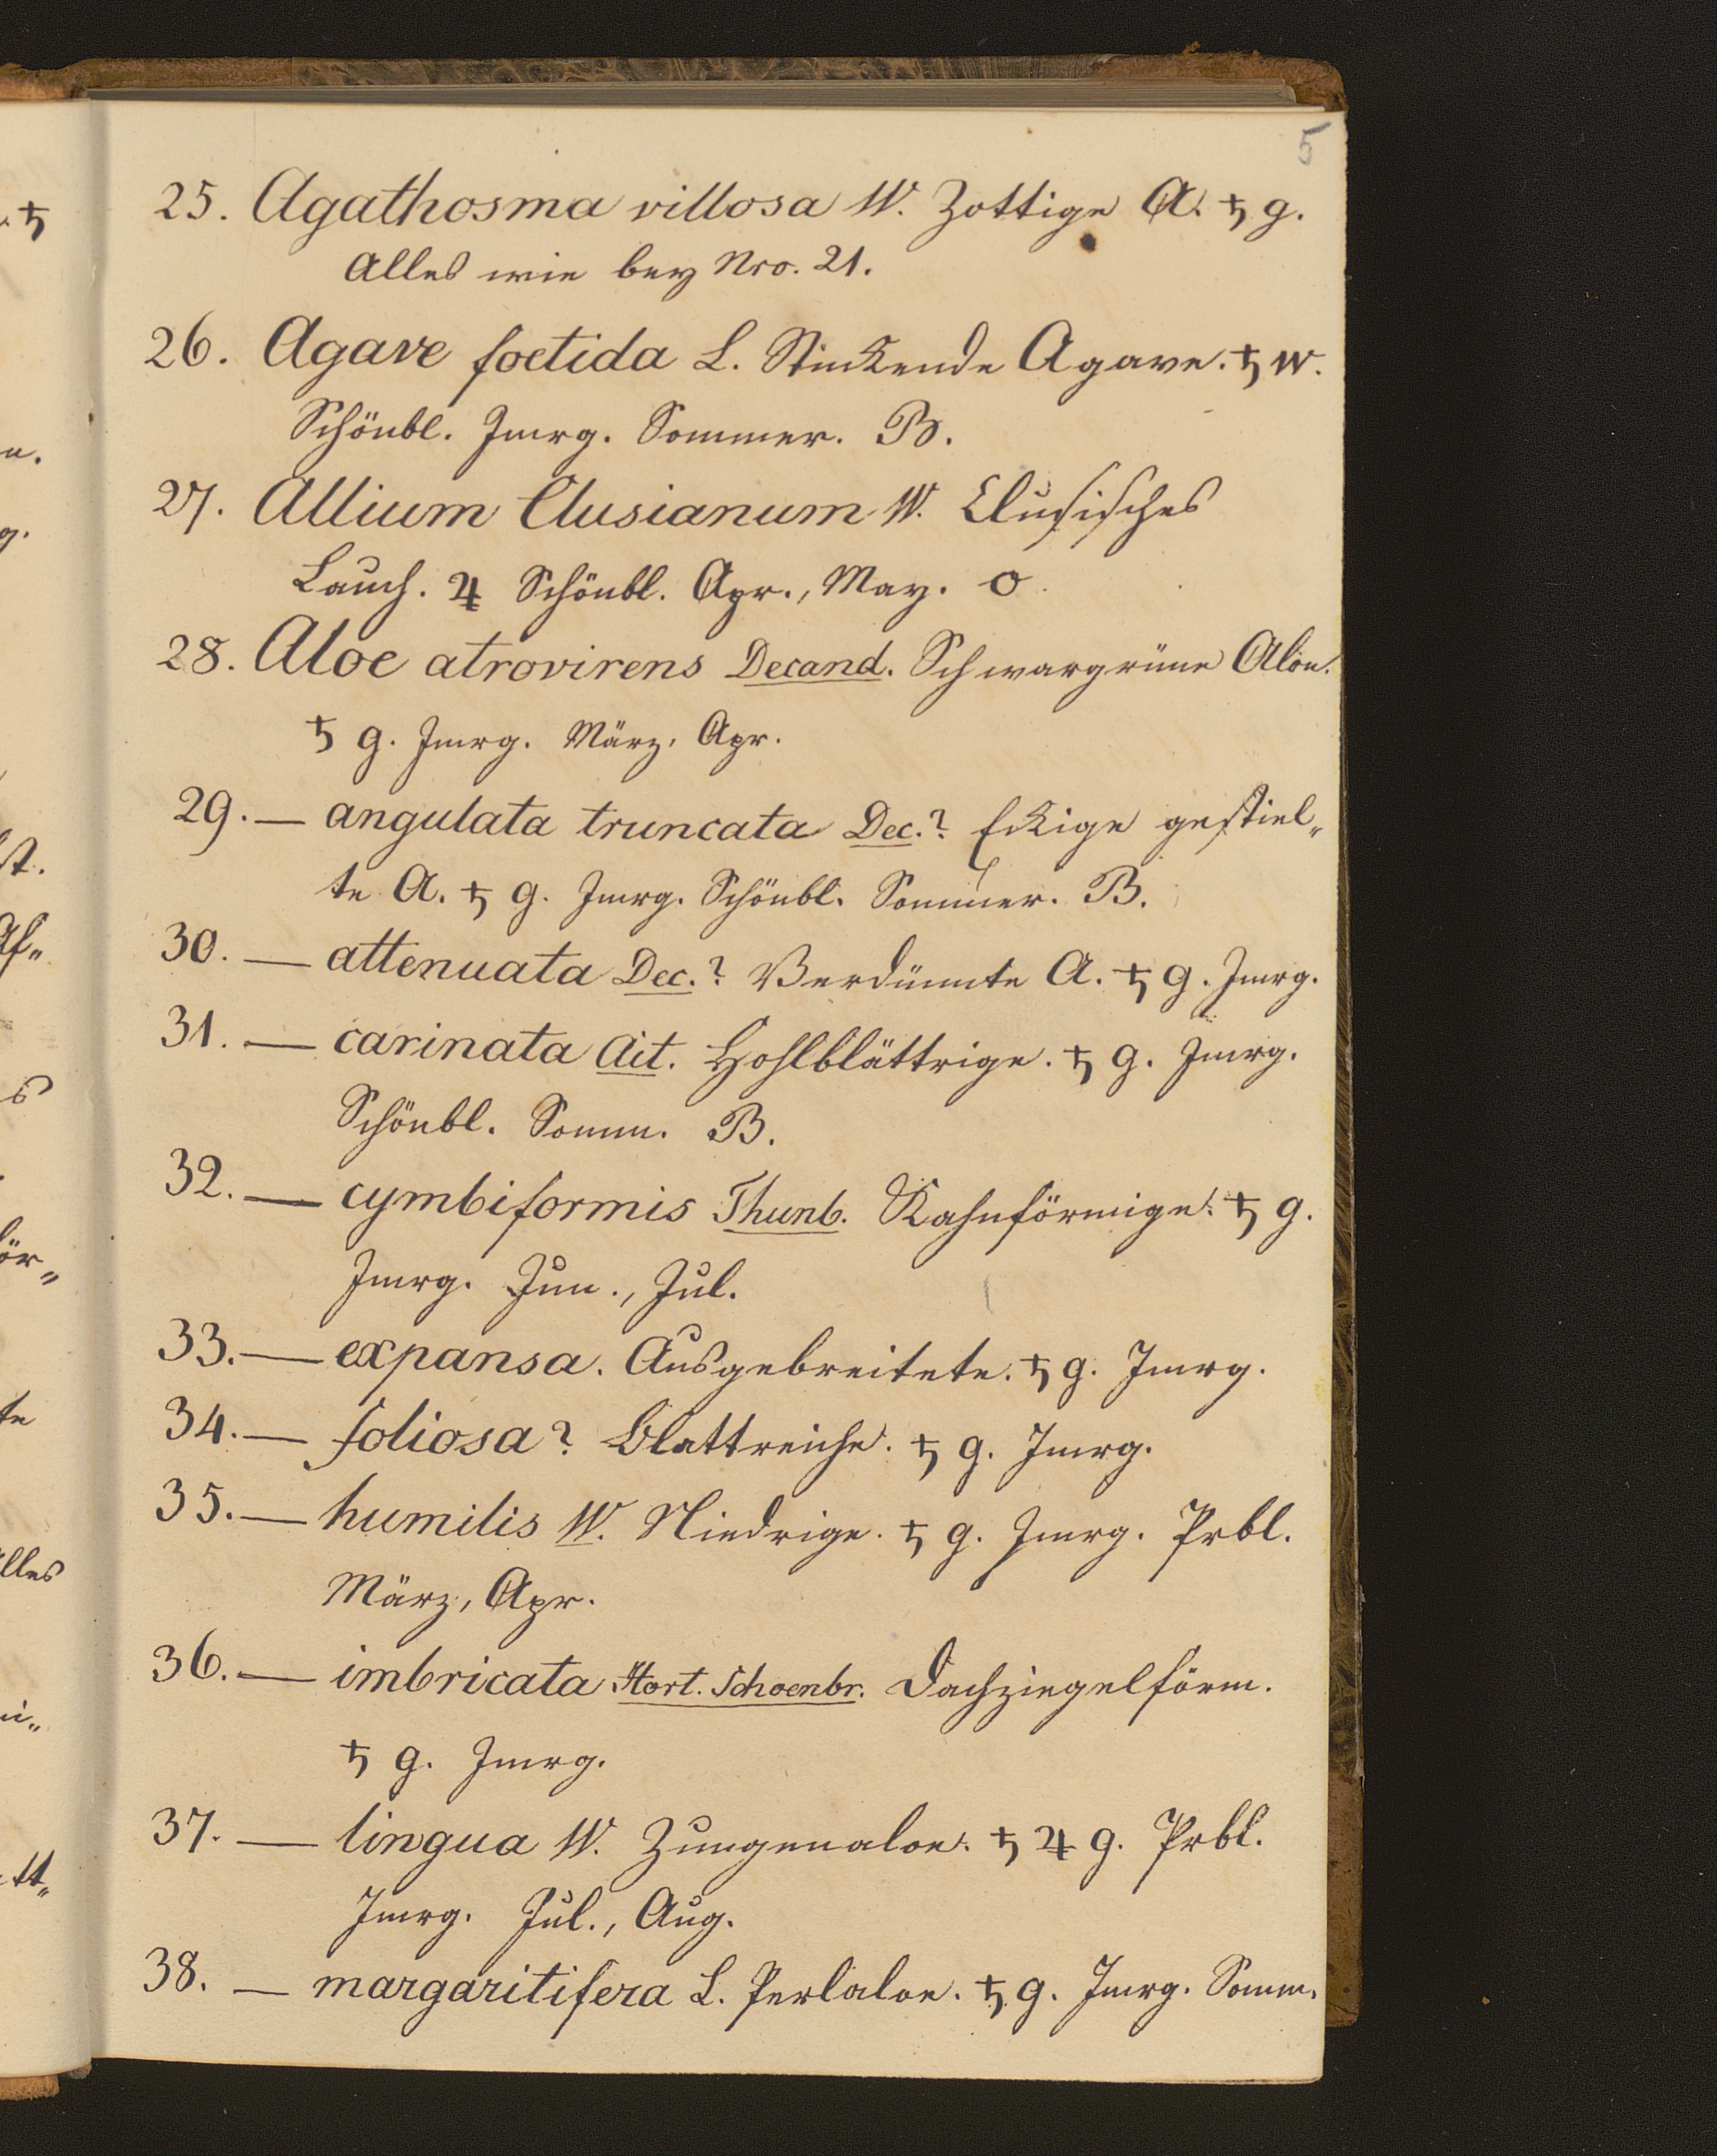 5
25. Agathosma villosa W. Zottige A. ♄ g.
Alles wie bey Nro. 21.
26. Agave foetida L. Stinkende Agave. ♄ w.
Schönbl. Jmrg. Sommer. B.
27. Allium Clusianum W. Clusisches
Lauch. ♃ Schönbl. Apr., May. O
28. Aloe atrovirens Decand. Schwargrüne Aloe.
♄ g. Jmrg. März, Apr.
29. — angulata truncata Dec.? Eckige gestiel„
te A. ♄ g. Jmrg. Schönbl. Sommer. B.
30. — attenuata Dec.? Verdünnte A. ♄ g. Jmrg.
31. — carinata Ait. Hohlblättrige. ♄ g. Jmrg.
Schönbl. Somm. B.
32. — cymbiformis Thunb. Kahnförmige. ♄ g.
Jmrg. Jun., Jul.
33. — expansa. Ausgebreitete. ♄ g. Jmrg.
34. — foliosa? Blattreiche. ♄ g. Jmrg.
35. — humilis W. Niedrige. ♄ g. Jmrg. Prbl.
März, Apr.
36. — imbricata Hort. Schoenbr. Dachziegelförm.
♄ g. Jmrg.
37. — lingua W. Zungenaloe. ♄ ♃ g. Prbl.
Jmrg. Jul., Aug.
38. — margaritifera L. Perlaloe. ♄ g. Jmrg. Somm.